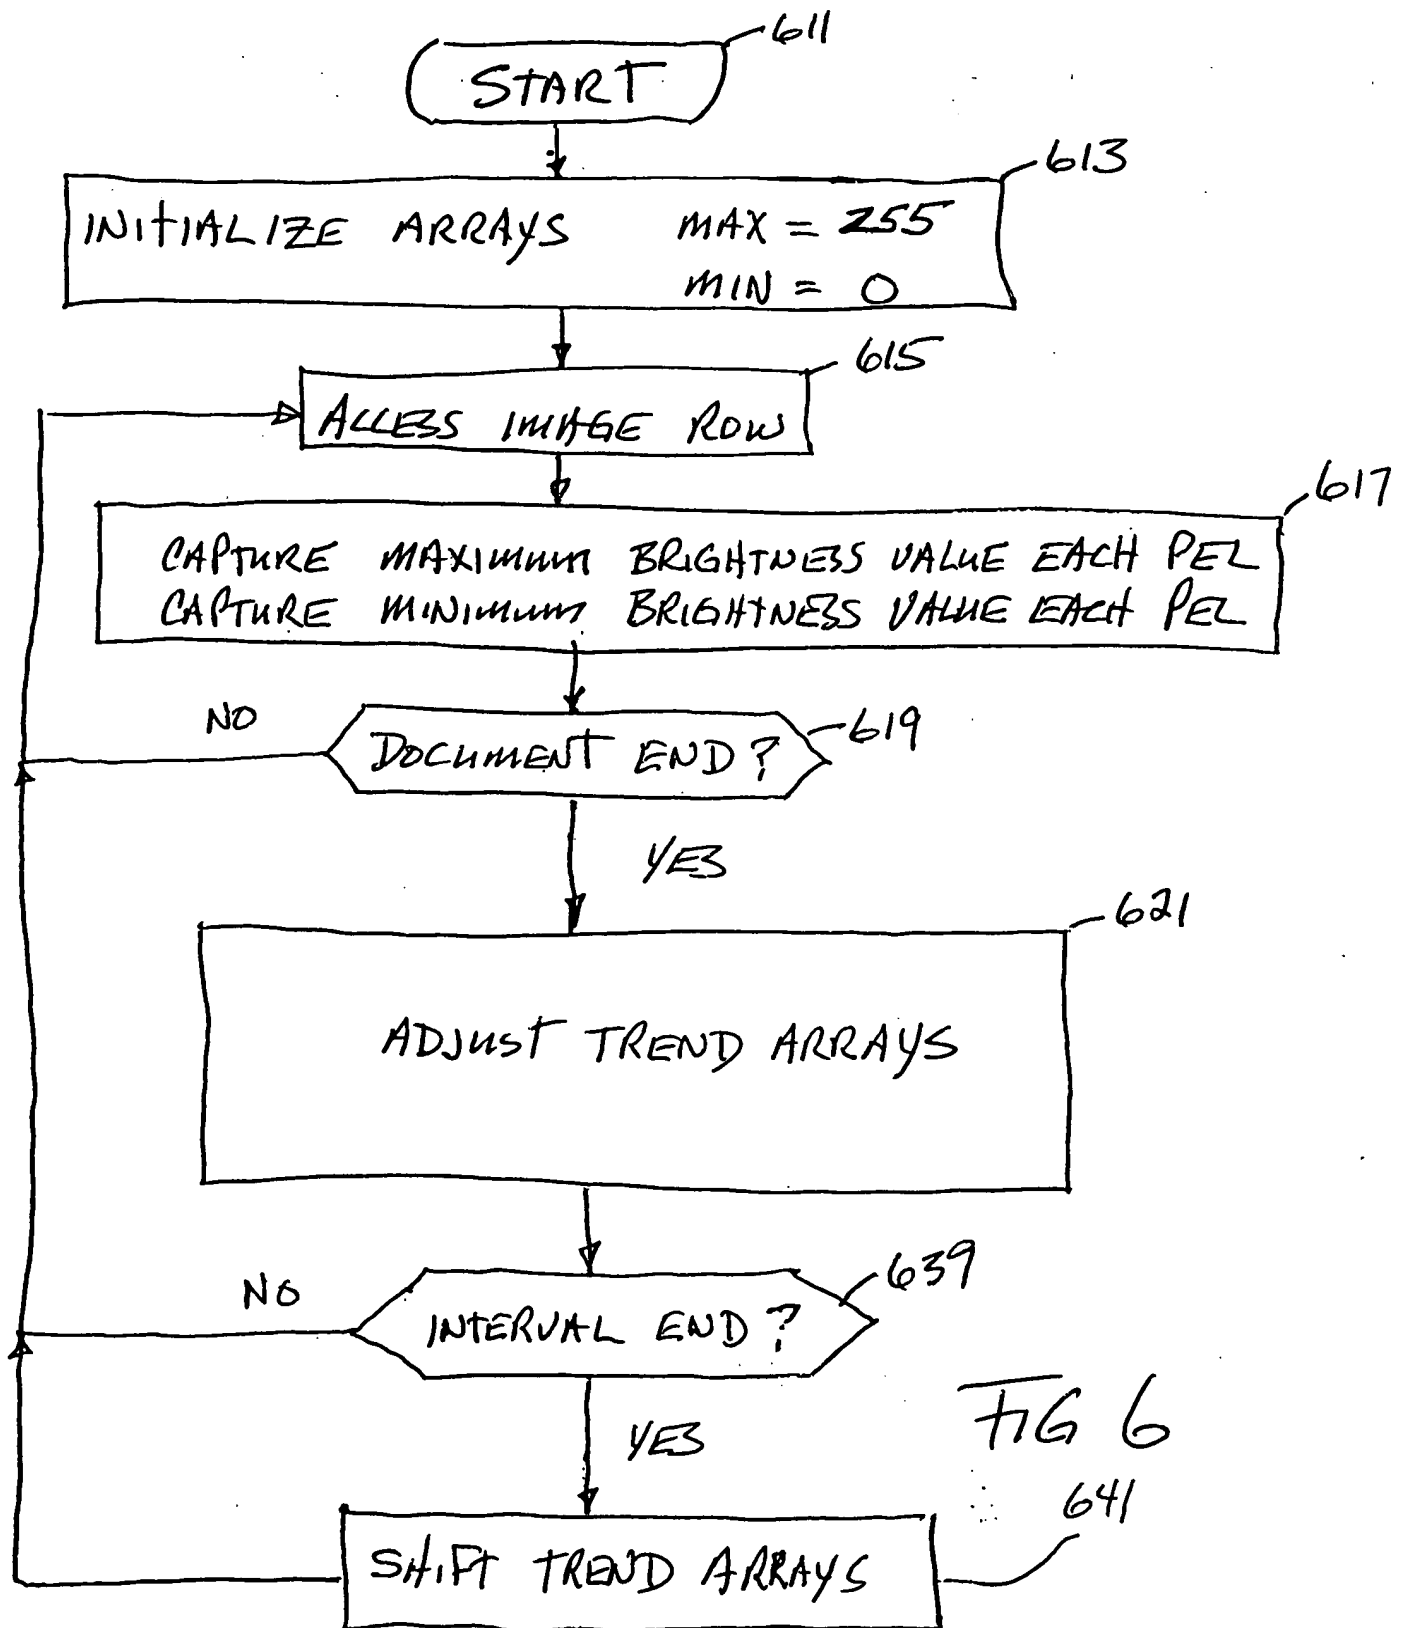 611
START
613
INITIALIZE ARRAYS MAX = 255
MIN = 0
615
ACCESS IMAGE ROW
617
CAPTURE MAXIMUM BRIGHTNESS VALUE EACH PEL
CAPTURE MINIMUM BRIGHTNESS VALUE EACH PEL
NO
619
DOCUMENT END?
YES
621
ADJUST TREND ARRAYS
639
NO
INTERVAL END?
YES
FIG 6
641
SHIFT TREND ARRAYS